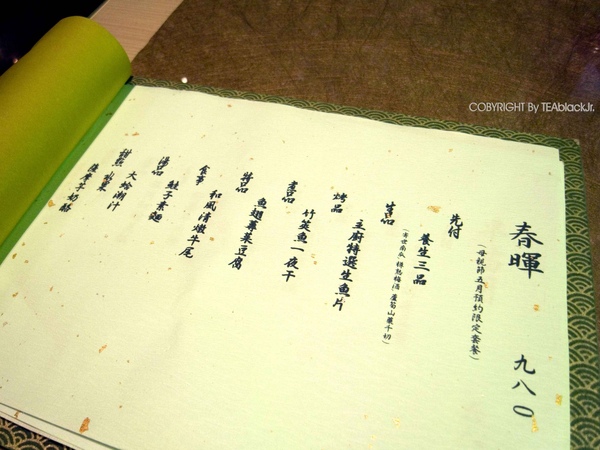 春暉 九八〇
(母親節五月預約限定套餐)
先付
養生三品
南瓜 梅酒 蘆筍山藥千切)
生品
主廚特選生魚片
烤品
竹筴魚一夜干
煮品
魚翅蓴菜豆腐
和風清燉牛尾
食事
鮭子素麵
湯品
大蛤潮汁
甜點 水果
薩摩芋奶酪
COBYRIGHT By TEAblackJr.